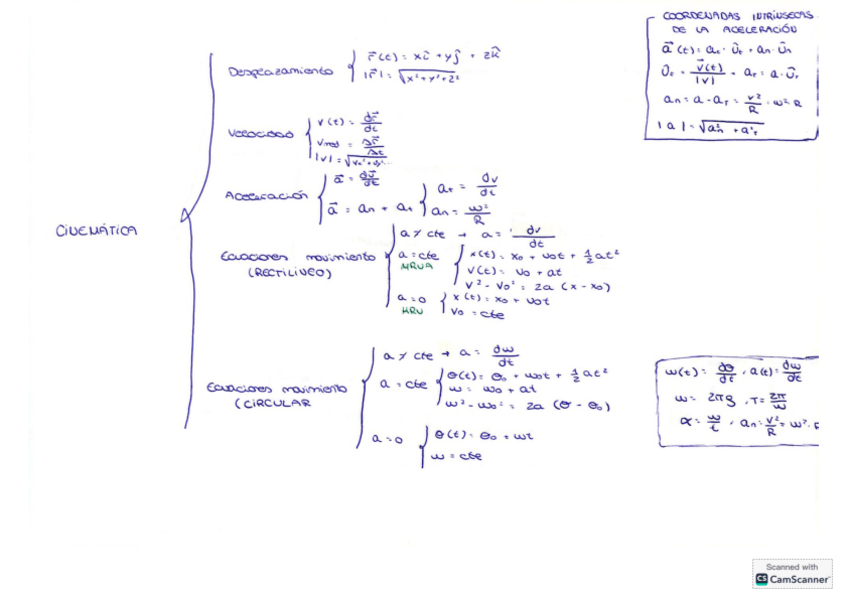 CINEMÁTICA
Desplazamiento
r⃗(t) = xî + yĵ + zk̂
|r⃗| = √x²+y²+z²
Velocidad
v(t) = dr⃗/dt
Vmed = Δr⃗/Δt
|v| = √vx²+vy²...
Aceleración
a⃗ = dv⃗/dt
a⃗ = an + at
at = dv/dt
an = w²/R
Ecuaciones movimiento
(RECTILINEO)
a ≠ cte → a = dv/dt
a = cte
MRUA
x(t) = x0 + v0t + 1/2 at²
v(t) = v0 + at
v² - v0² = 2a (x - x0)
a = 0
MRU
x(t) = x0 + v0t
v0 = cte
Ecuaciones movimiento
(CIRCULAR
a ≠ cte → a = dw/dt
a = cte
θ(t) = θ0 + w0t + 1/2 at²
w = w0 + at
w² - w0² = 2a (θ - θ0)
a = 0
θ(t) = θ0 = wt
w = cte
COORDENADAS INTRÍNSECAS
DE LA ACELERACIÓN
a⃗(t) = at · ût + an · ûn
v⃗(t)/|v|
v²/R · w² R
|a| = √an² + at²
w(t) = dθ/dt , a(t) = dw/dt
w = 2πf , T = 2π/w
α = w/t , an = v²/R = w² ·
Scanned with
CS CamScanner